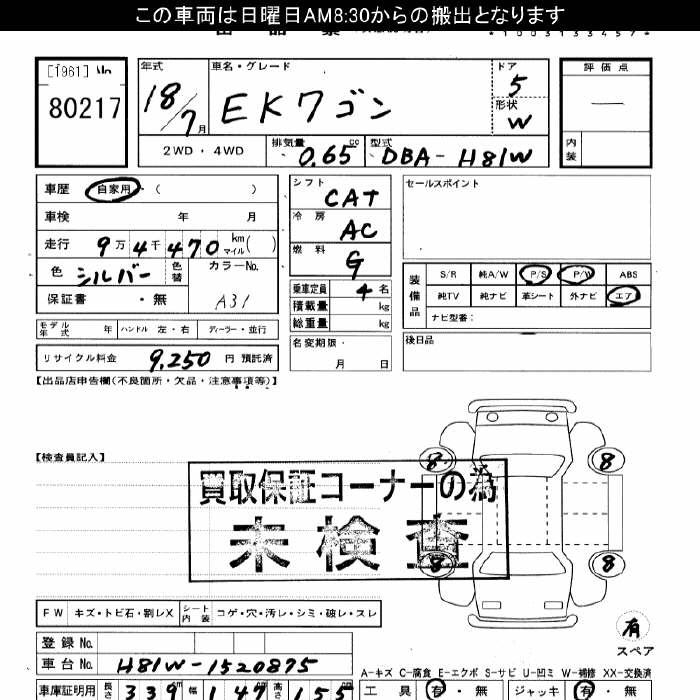 この車両は日曜日AM8:30からの搬出となります
[1961] No
80217
年式 車名・グレード ドア 評価点
18/7月 EKワゴン 5
形状 W
2WD・4WD 排気量 0.65 cc 型式 DBA-H81W 内装
車歴 自家用 ( ) シフト CAT セールスポイント
車検 年 月 冷房 AC
走行 9万4千470 km マイル ( ) 燃料 G
色 シルバー 色替 カラーNo. A31 乗車定員 4名
装備品 S/R 純A/W P/S P/W ABS
純TV 純ナビ 革シート 外ナビ エア
保証書 ・無 積載量 kg ナビ型番:
モデル年式 年 ハンドル 左・右 ディーラー・並行 総重量 kg
リサイクル料金 9,250 円 預託済 名変期限・ 月 日 後日品
【出品店申告欄(不良箇所・欠品・注意事項等)】
【検査員記入】
8 8
買取保証コーナーの為
未検査
8 8
FW キズ・トビ石・割レX シート内装 コゲ・穴・汚レ・シミ・破レ・スレ
有
スペア
登録No.
車台No. H81W-1520875
A-キズ C-腐食 E-エクボ S-サビ U-凹ミ W-補修 XX-交換済
車庫証明用 長さ 339 幅 147 高さ 155 工具 有・無 ジャッキ 有・無